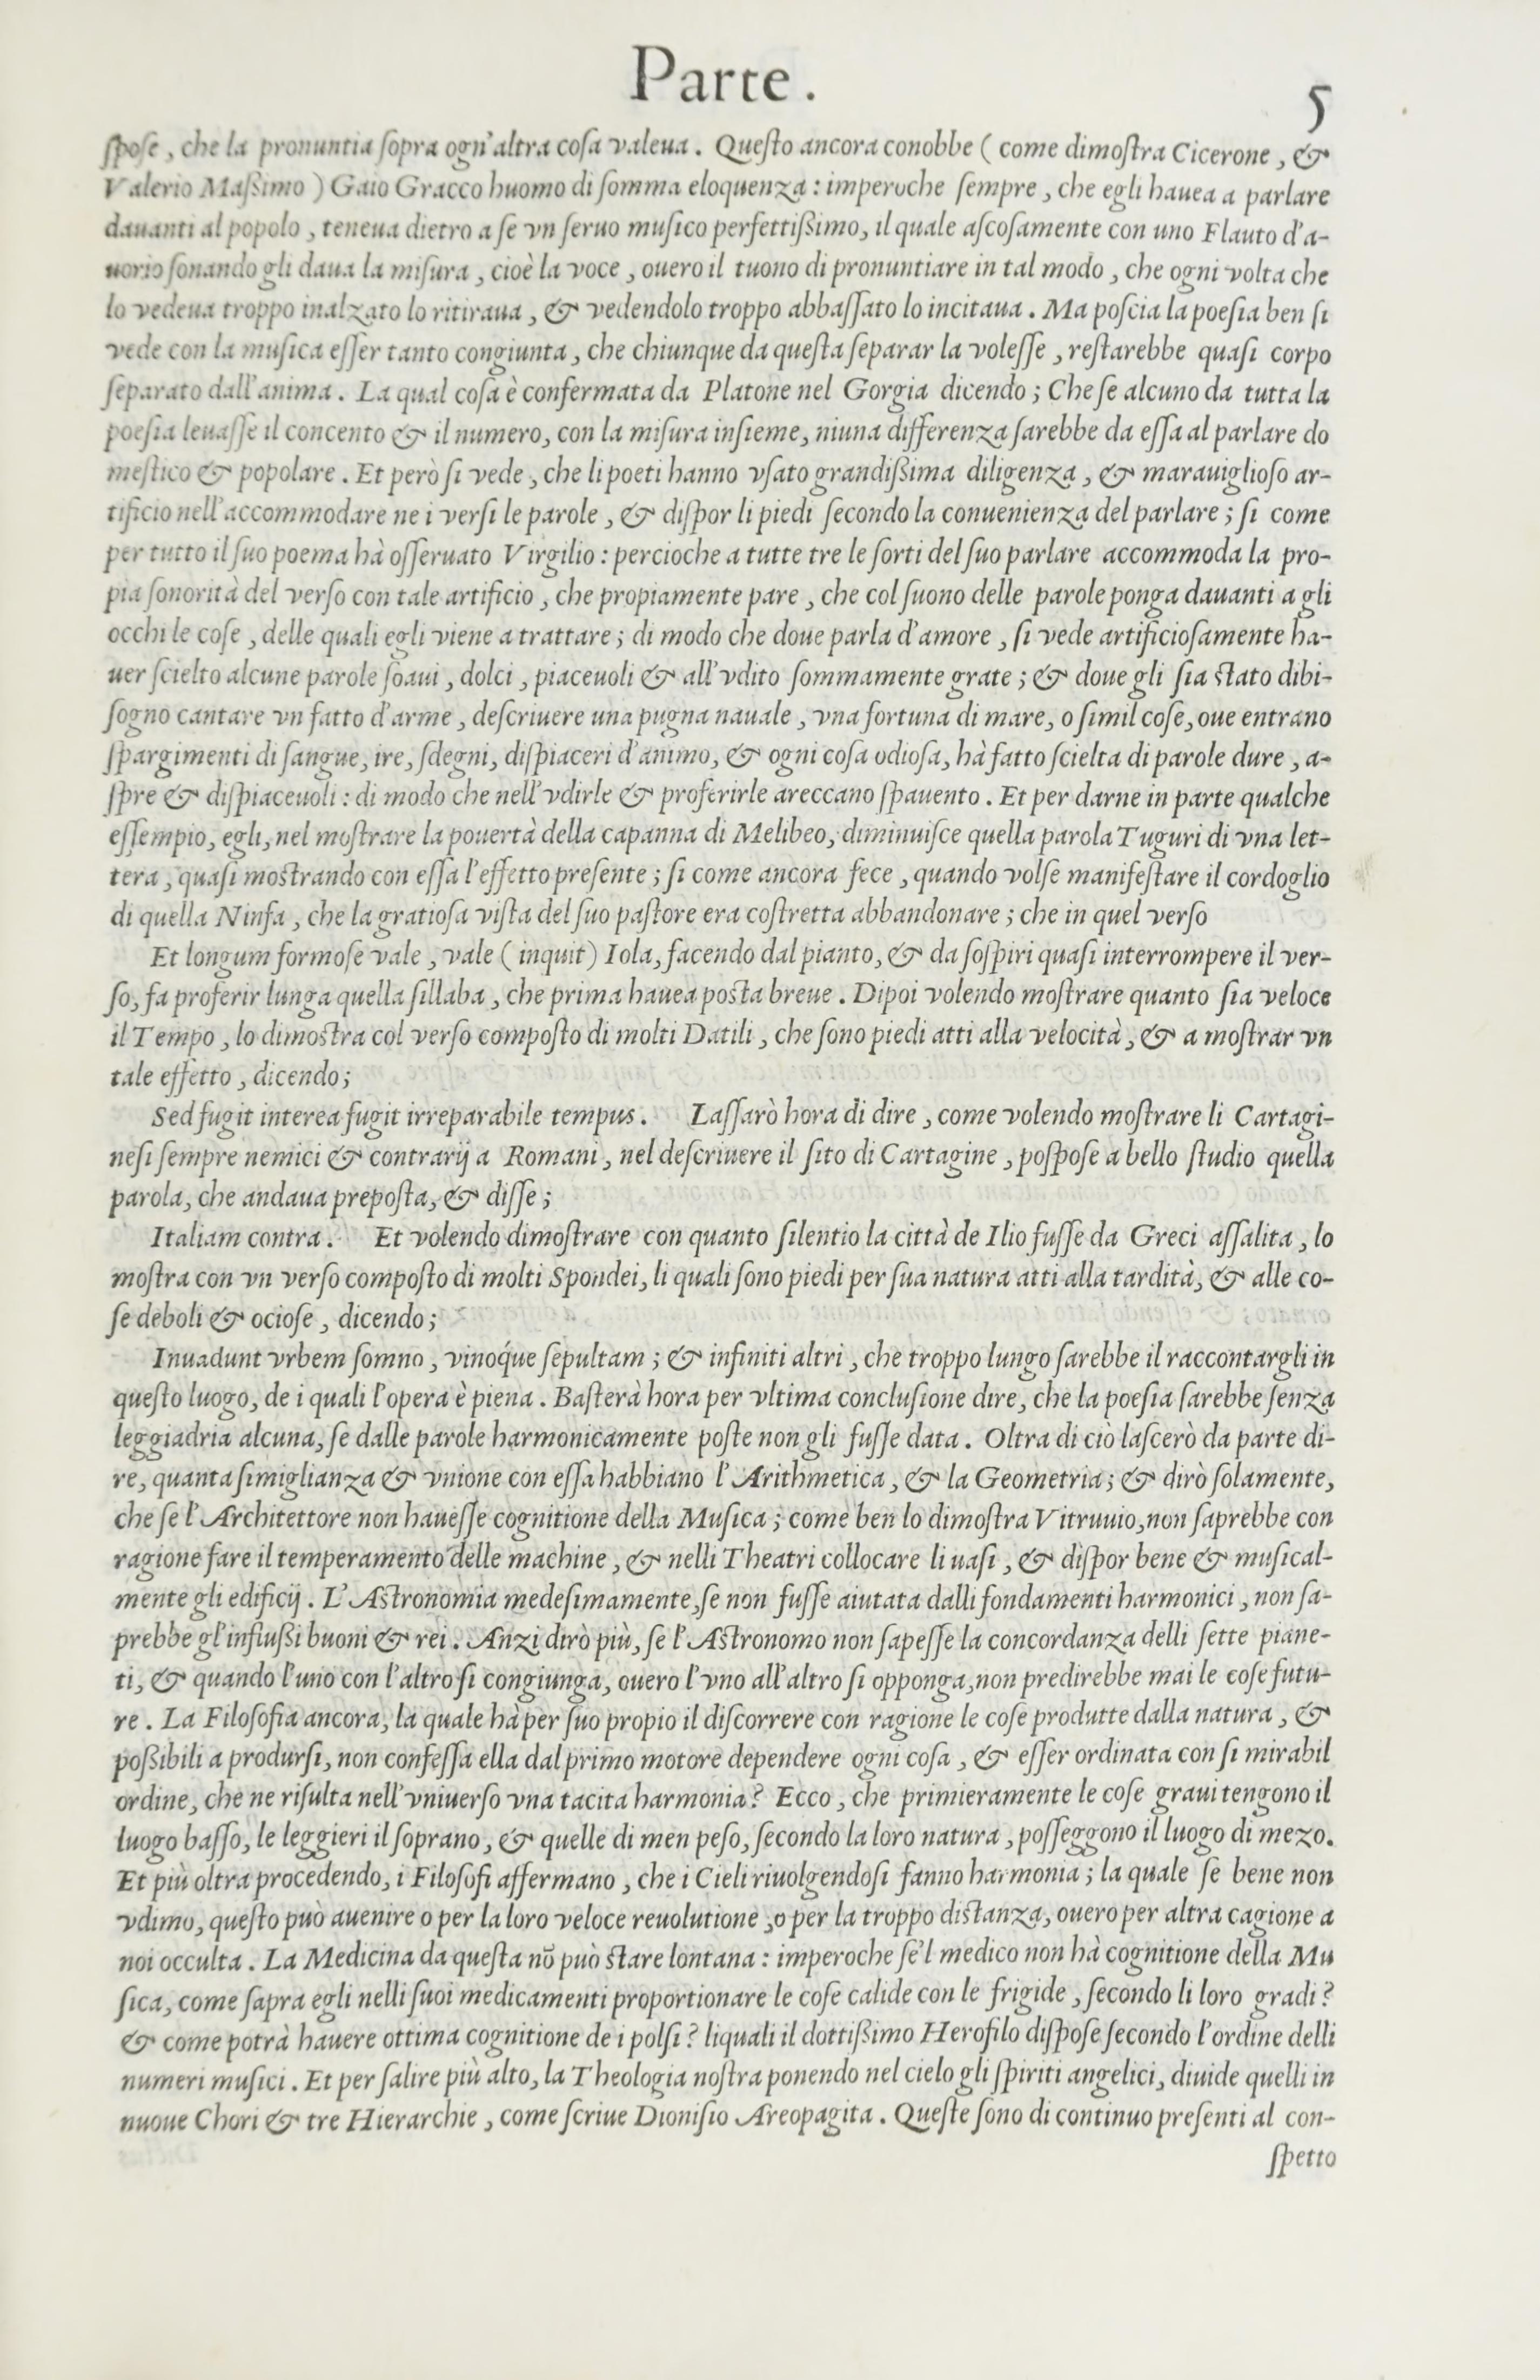 Parte.
5
ſpoſe, che la pronuntia ſopra ogn'altra coſa valeua. Queſto ancora conobbe (come dimoſtra Cicerone, &
Valerio Maßimo) Gaio Gracco huomo di ſomma eloquenza: imperoche ſempre, che egli hauea a parlare
dauanti al popolo, teneua dietro a ſe vn ſeruo muſico perfettißimo, il quale aſcoſamente con uno Flauto d'a-
uorio ſonando gli daua la miſura, cioè la voce, ouero il tuono di pronuntiare in tal modo, che ogni volta che
lo vedeua troppo inalzato lo ritiraua, & vedendolo troppo abbaſſato lo incitaua. Ma poſcia la poeſia ben ſi
vede con la muſica eſſer tanto congiunta, che chiunque da queſta ſeparar la voleſſe, reſtarebbe quaſi corpo
ſeparato dall'anima. La qual coſa è confermata da Platone nel Gorgia dicendo; Che ſe alcuno da tutta la
poeſia leuaſſe il concento & il numero, con la miſura inſieme, niuna differenza ſarebbe da eſſa al parlare do
meſtico & popolare. Et però ſi vede, che li poeti hanno vſato grandißima diligenza, & marauiglioſo ar-
tificio nell'accommodare ne i verſi le parole, & diſpor li piedi ſecondo la conuenienza del parlare; ſi come
per tutto il ſuo poema hà oſſeruato Virgilio: percioche a tutte tre le ſorti del ſuo parlare accommoda la pro-
pia ſonorità del verſo con tale artificio, che propiamente pare, che col ſuono delle parole ponga dauanti a gli
occhi le coſe, delle quali egli viene a trattare; di modo che doue parla d'amore, ſi vede artificioſamente ha-
uer ſcielto alcune parole ſoaui, dolci, piaceuoli & all'vdito ſommamente grate; & doue gli ſia ſtato dibi-
ſogno cantare vn fatto d'arme, deſcriuere una pugna nauale, vna fortuna di mare, o ſimil coſe, oue entrano
ſpargimenti di ſangue, ire, ſdegni, diſpiaceri d'animo, & ogni coſa odioſa, hà fatto ſcielta di parole dure, a-
ſpre & diſpiaceuoli: di modo che nell'vdirle & proferirle areccano ſpauento. Et per darne in parte qualche
eſſempio, egli, nel moſtrare la pouertà della capanna di Melibeo, diminuiſce quella parola Tuguri di vna let-
tera, quaſi moſtrando con eſſa l'effetto preſente; ſi come ancora fece, quando volſe manifeſtare il cordoglio
di quella Ninfa, che la gratioſa viſta del ſuo paſtore era coſtretta abbandonare; che in quel verſo
Et longum formoſe vale, vale (inquit) Iola, facendo dal pianto, & da ſoſpiri quaſi interrompere il ver-
ſo, fa proferir lunga quella ſillaba, che prima hauea poſta breue. Dipoi volendo moſtrare quanto ſia veloce
il Tempo, lo dimoſtra col verſo compoſto di molti Datili, che ſono piedi atti alla velocità, & a moſtrar vn
tale effetto, dicendo;
Sed fugit interea fugit irreparabile tempus. Laſſarò hora di dire, come volendo moſtrare li Cartagi-
neſi ſempre nemici & contrarij a Romani, nel deſcriuere il ſito di Cartagine, poſpoſe a bello ſtudio quella
parola, che andaua prepoſta, & diſſe;
Italiam contra. Et volendo dimoſtrare con quanto ſilentio la città de Ilio fuſſe da Greci aſſalita, lo
moſtra con vn verſo compoſto di molti Spondei, li quali ſono piedi per ſua natura atti alla tardità, & alle co-
ſe deboli & ocioſe, dicendo;
Inuadunt vrbem ſomno, vinoq́ue ſepultam; & infiniti altri, che troppo lungo ſarebbe il raccontargli in
queſto luogo, de i quali l'opera è piena. Baſterà hora per vltima concluſione dire, che la poeſia ſarebbe ſenza
leggiadria alcuna, ſe dalle parole harmonicamente poſte non gli fuſſe data. Oltra di ciò laſcerò da parte di-
re, quanta ſimiglianza & vnione con eſſa habbiano l'Arithmetica, & la Geometria; & dirò ſolamente,
che ſe l'Architettore non haueſſe cognitione della Muſica; come ben lo dimoſtra Vitruuio, non ſaprebbe con
ragione fare il temperamento delle machine, & nelli Theatri collocare li uaſi, & diſpor bene & muſical-
mente gli edificij. L'Aſtronomia medeſimamente, ſe non fuſſe aiutata dalli fondamenti harmonici, non ſa-
prebbe gl'influßi buoni & rei. Anzi dirò più, ſe l'Aſtronomo non ſapeſſe la concordanza delli ſette piane-
ti, & quando l'uno con l'altro ſi congiunga, ouero l'vno all'altro ſi opponga, non predirebbe mai le coſe futu-
re. La Filoſofia ancora, la quale hà per ſuo propio il diſcorrere con ragione le coſe produtte dalla natura, &
poßibili a produrſi, non confeſſa ella dal primo motore dependere ogni coſa, & eſſer ordinata con ſi mirabil
ordine, che ne riſulta nell'vniuerſo vna tacita harmonia? Ecco, che primieramente le coſe graui tengono il
luogo baſſo, le leggieri il ſoprano, & quelle di men peſo, ſecondo la loro natura, poſſeggono il luogo di mezo.
Et più oltra procedendo, i Filoſofi affermano, che i Cieli riuolgendoſi fanno harmonia; la quale ſe bene non
vdimo, queſto può auenire o per la loro veloce reuolutione, o per la troppo diſtanza, ouero per altra cagione a
noi occulta. La Medicina da queſta nõ può ſtare lontana: imperoche ſe'l medico non hà cognitione della Mu
ſica, come ſapra egli nelli ſuoi medicamenti proportionare le coſe calide con le frigide, ſecondo li loro gradi?
& come potrà hauere ottima cognitione de i polſi? liquali il dottißimo Herofilo diſpoſe ſecondo l'ordine delli
numeri muſici. Et per ſalire più alto, la Theologia noſtra ponendo nel cielo gli ſpiriti angelici, diuide quelli in
nuoue Chori & tre Hierarchie, come ſcriue Dioniſio Areopagita. Queſte ſono di continuo preſenti al con-
ſpetto